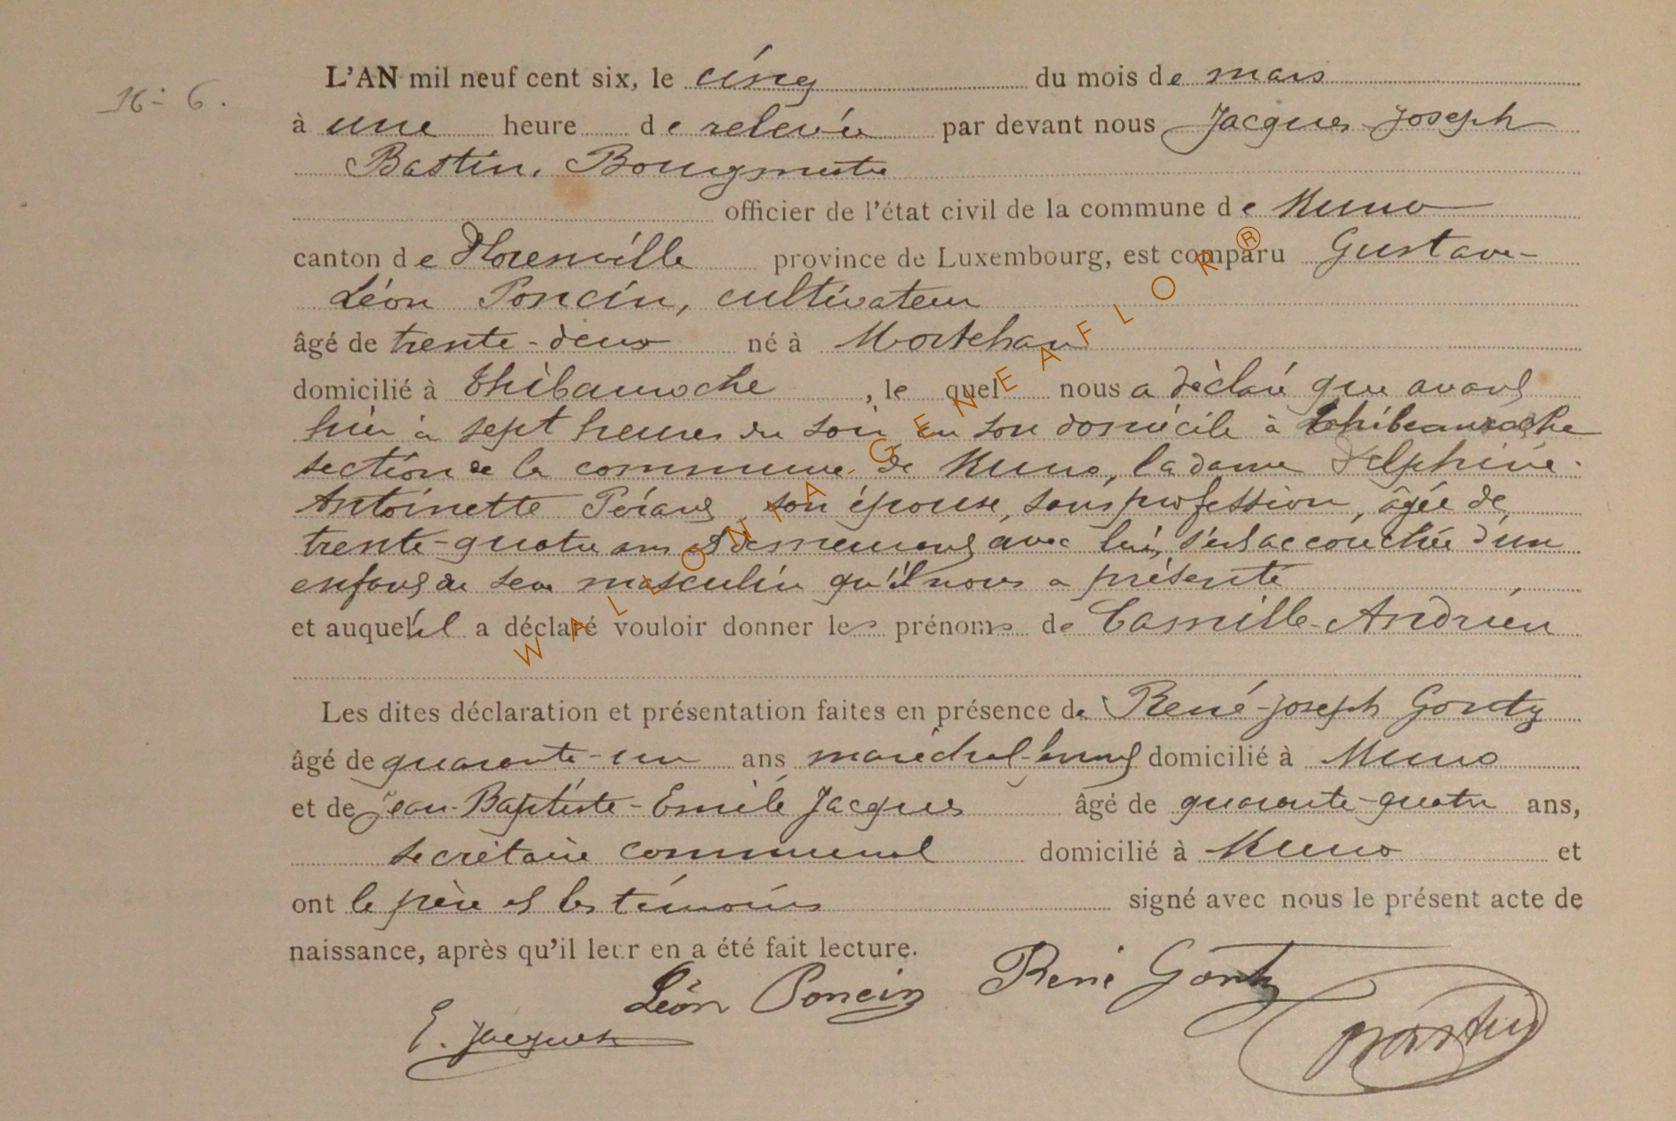 N° 6.
L'AN mil neuf cent six, le cinq du mois de mars
à une heure de relevée par devant nous Jacques-Joseph
Bastin, Bourgmestre
officier de l'état civil de la commune de Muno
canton de Florenville province de Luxembourg, est comparu Gustave-
Léon Poncin, cultivateur
âgé de trente-deux né à Mortehan
domicilié à Thibauroche, le quel nous a déclaré que avant
hier à sept heures du soir en son domicile à Thibauroche
section de la commune de Muno, la dame Delphine-
Antoinette son épouse, sans profession, âgée de
trente-quatre ans et demeurant avec lui, s'est accouchée d'un
enfant du sexe masculin qu'il nous a présenté
et auquel il a déclaré vouloir donner les prénoms de Camille-Andrien
Les dites déclaration et présentation faites en présence de René-Joseph Goutz
âgé de quarante-un ans maréchal-ferrant domicilié à Muno
et de Jean-Baptiste-Emile Jacques âgé de quarante-quatre ans,
secrétaire communal domicilié à Muno et
ont le père et les témoins signé avec nous le présent acte de
naissance, après qu'il leur en a été fait lecture.
Léon Poncin René Goutz
E. Jacques Bastin
WALLONIA GENEAFLOR®